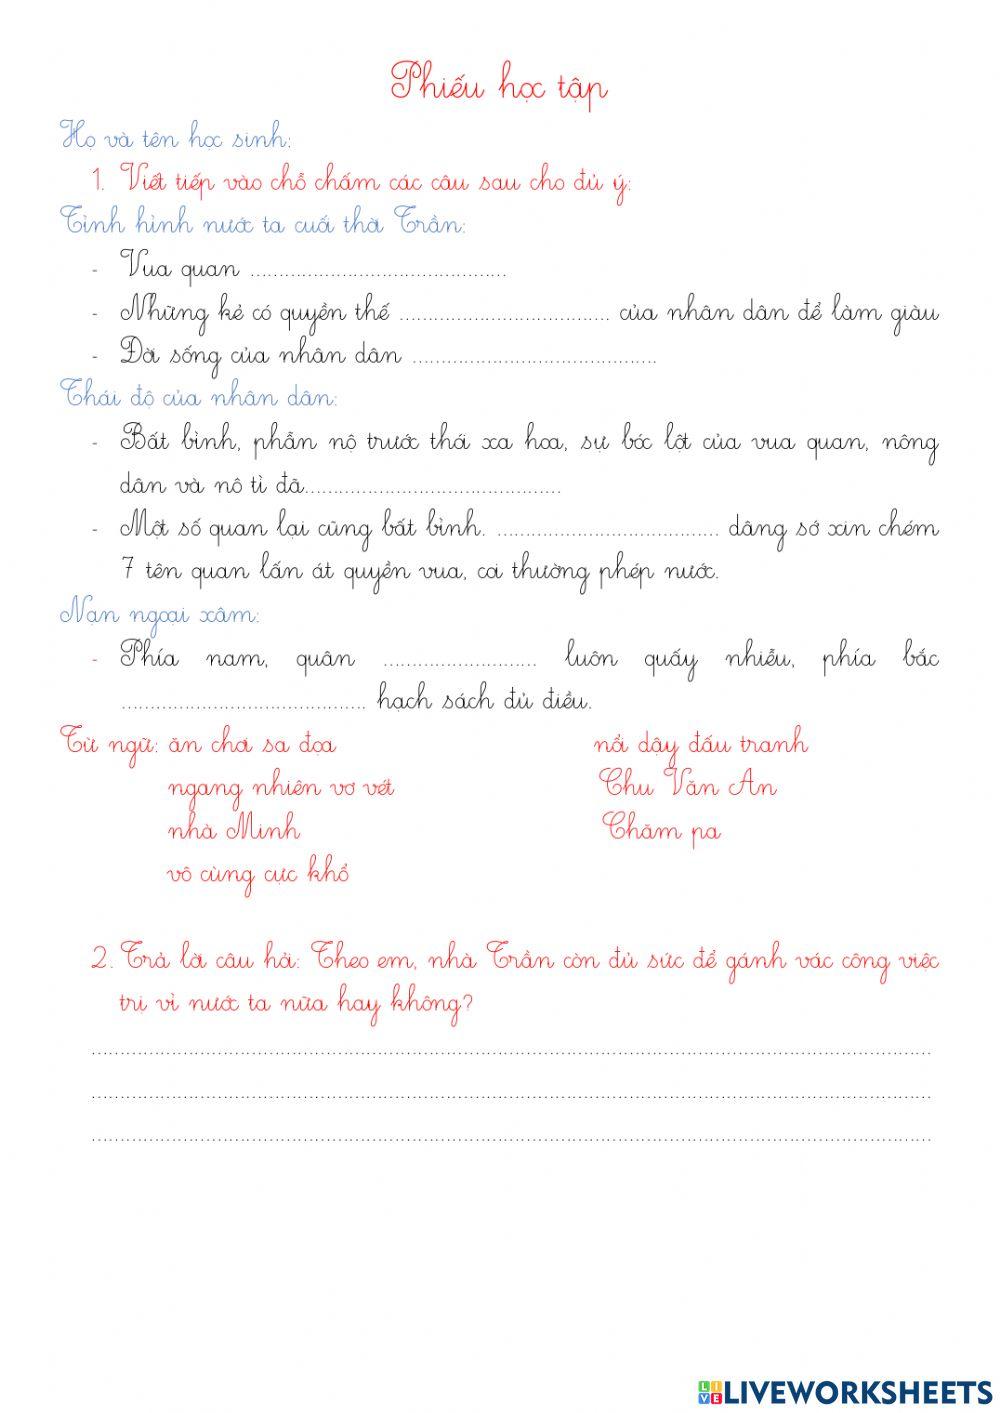 Phiếu học tập
Họ và tên học sinh:
1. Viết tiếp vào chỗ chấm các câu sau cho đủ ý:
Tình hình nước ta cuối thời Trần:
- Vua quan ............................................
- Những kẻ có quyền thế .................................... của nhân dân để làm giàu
- Đời sống của nhân dân ..........................................
Thái độ của nhân dân:
- Bất bình, phẫn nộ trước thói xa hoa, sự bóc lột của vua quan, nông
dân và nô tì đã............................................
- Một số quan lại cũng bất bình. ...................................... dâng sớ xin chém
7 tên quan lấn át quyền vua, coi thường phép nước.
Nạn ngoại xâm:
- Phía nam, quân ........................... luôn quấy nhiễu, phía bắc
.......................................... hạch sách đủ điều.
Từ ngữ: ăn chơi sa đọa nổi dậy đấu tranh
ngang nhiên vơ vét Chu Văn An
nhà Minh Chăm pa
vô cùng cực khổ
2. Trả lời câu hỏi: Theo em, nhà Trần còn đủ sức để gánh vác công việc
trị vì nước ta nữa hay không?
..................................................................................................................................................
..................................................................................................................................................
..................................................................................................................................................
LIVE LIVEWORKSHEETS